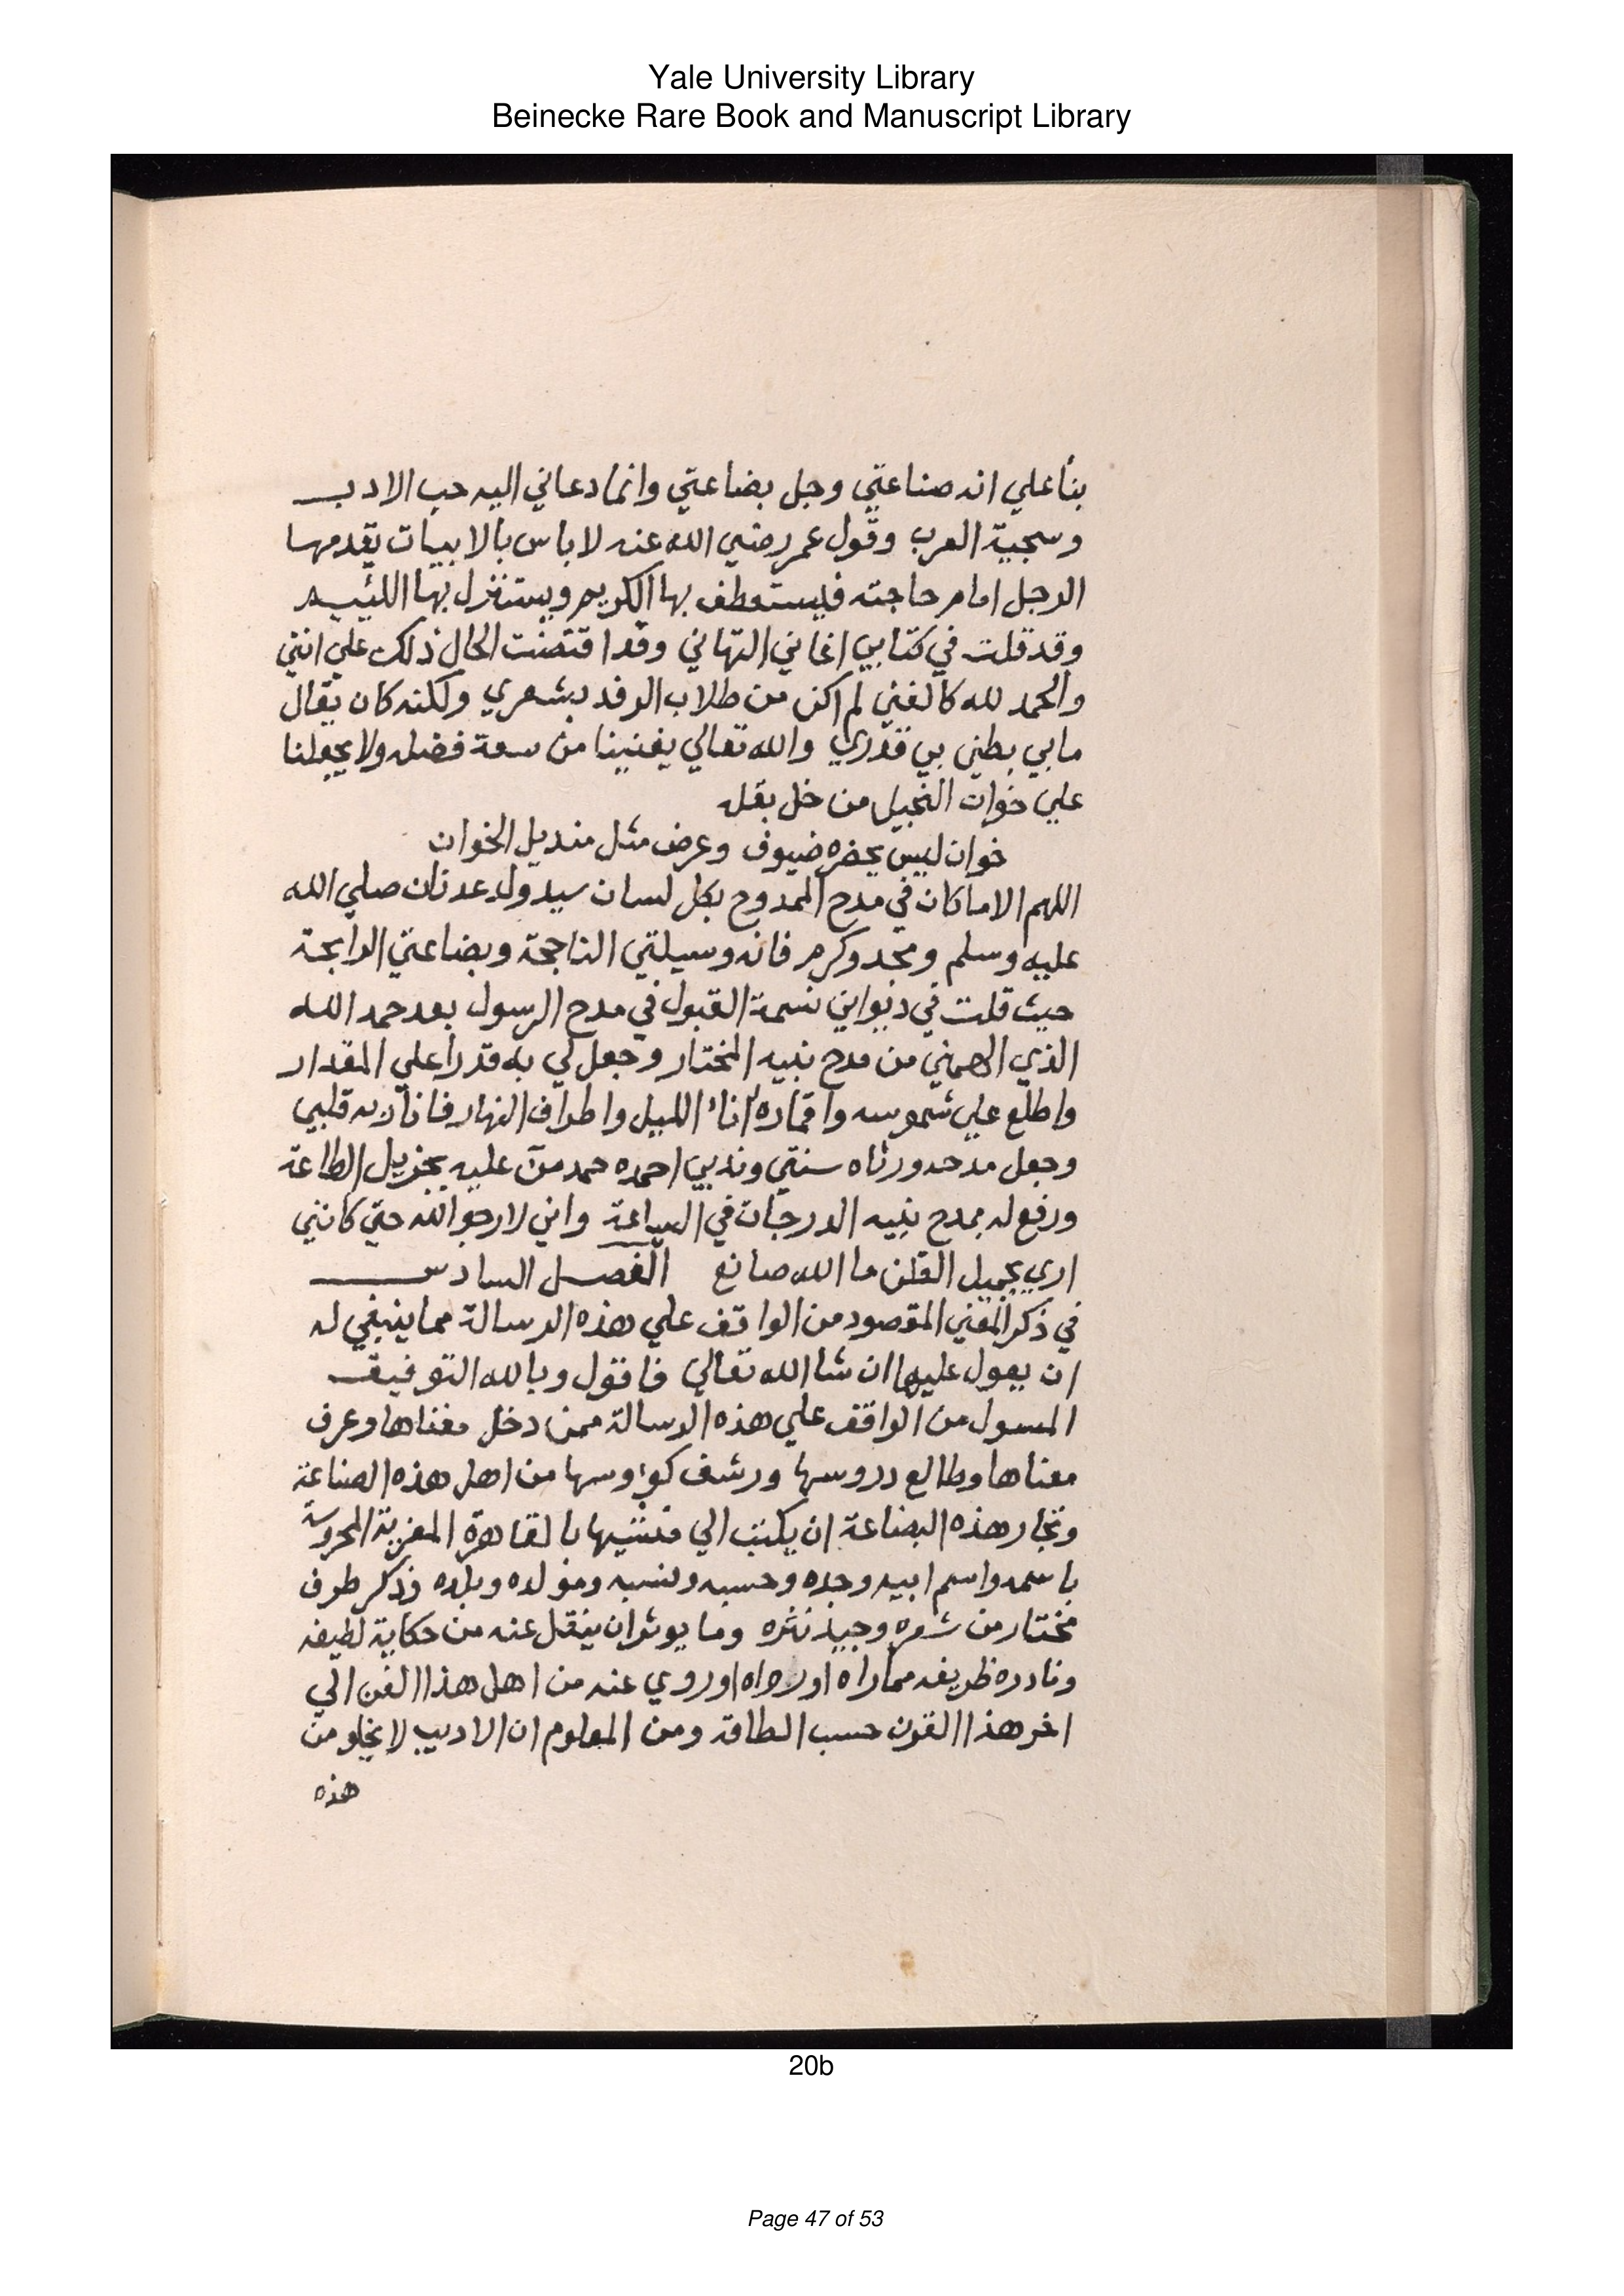 Yale University Library
Beinecke Rare Book and Manuscript Library
بنأ علي انه صناعتي وجل بضاعتي وانما دعاني اليه حب الادب
وسجية العرب وقول عمر رضي الله عنه لا باس بالابيات يقدمها
الرجل امام حاجته فيستعطف بها الكريم ويستنزل بها اللئيم
وقد قلت في كتابي اغاني التهاني وقد اقتضت الحال ذلك علي انني
والحمد لله كالغني لم اكن من طلاب الرفد بشعري ولكنه كان يقال
مابي بطني بي قدري والله تعالي يغنينا من سعة فضله ولا يجعلنا
علي خوان البخيل من خل بقله
خوان ليس يحضره ضيوف وعرض مثل منديل الخوان
اللهم الا ما كان في مدح الممدوح بكل لسان سيد ولد عدنان صلي الله
عليه وسلم ومجد وكرم فانه وسيلتي الناجحة وبضاعتي الرابحة
حيث قلت في ديواني نسمة القبول في مدح الرسول بعد حمد الله
الذي الهمني من مدح نبيه المختار وجعل لي به قدرا علي المقدار
واطلع علي شموسه واقماره اناء الليل واطراف النهار فانار به قلبي
وجعل مدحه ورثاه سنتي وندبي احمده حمد من عليه بجزيل الطاعة
ورفع له بمدح نبيه الدرجات في البراعة واني لارجو الله حتي كانني
اري بجميل الظن ما الله صانع الفصل السادس
في ذكر المعني المقصود من الواقف علي هذه الرسالة مما ينبغي له
ان يعول عليها ان شا الله تعالي فاقول وبالله التوفيق
المسول من الواقف علي هذه الرسالة ممن دخل مغناها وعرف
معناها وطالع دروسها ورشف كؤوسها من اهل هذه الصناعة
وتجار هذه البضاعة ان يكتب الي منشيها بالقاهرة المعزية المحروسة
باسمه واسم ابيه وجده وحسبه ونسبه ومولده وبلده وذكر طرف
مختار من شعره وجيد نثره وما يوثر ان ينقل عنه من حكاية لطيفه
ونادره ظريفه مما راه او رواه او روي عنه من اهل هذا الفن الي
اخر هذا القرن حسب الطاقة ومن المعلوم ان الاديب لا يخلو من
هذه
20b
Page 47 of 53